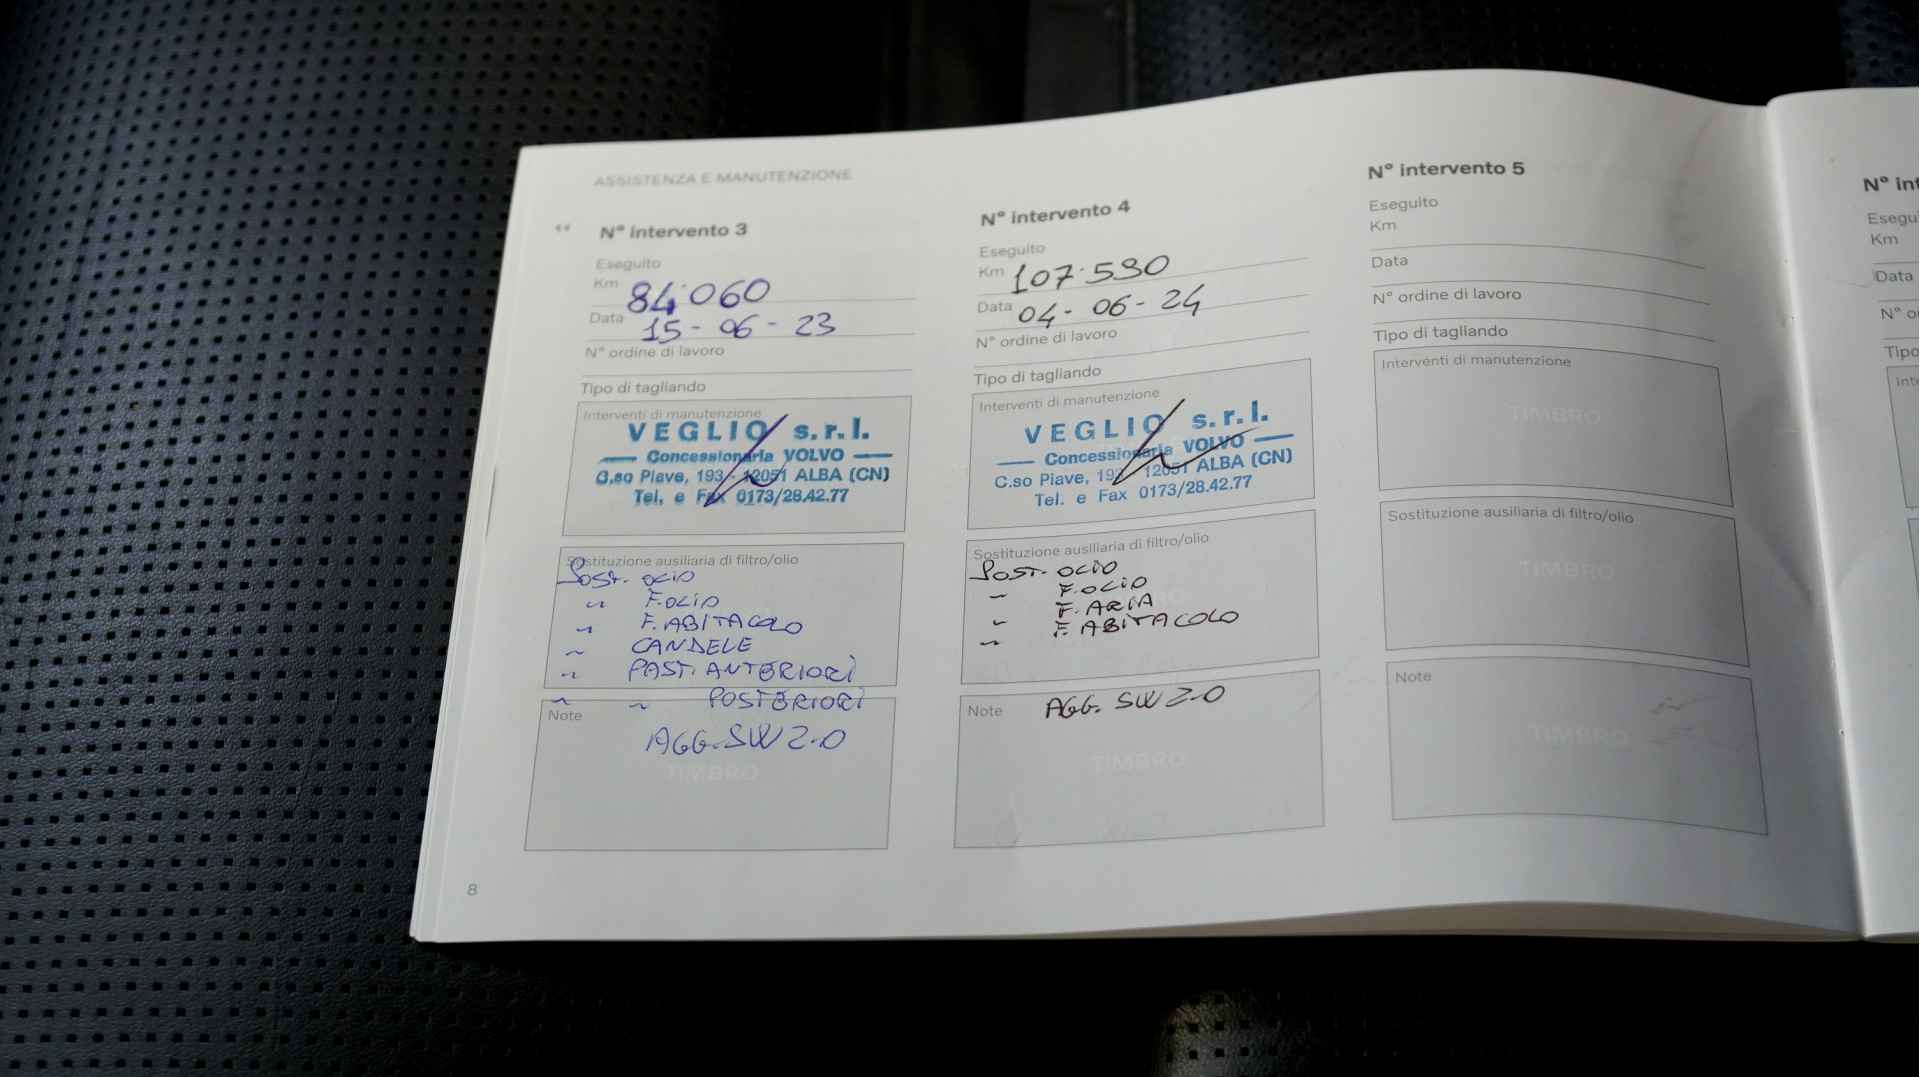 ASSISTENZA E MANUTENZIONE
N° intervento 3
Eseguito
Km 84.060
Data 15-06-23
N° ordine di lavoro
Tipo di tagliando
Interventi di manutenzione
VEGLIO s.r.l.
Concessionaria VOLVO
C.so Piave, 193 - 12051 ALBA (CN)
Tel. e Fax 0173/28.42.77
Sostituzione ausiliaria di filtro/olio
SOST. OLIO
~ F.OLIO
~ F. ABITACOLO
~ CANDELE
~ PAST. ANTERIORI
~ ~ POSTERIORI
Note
AGG. SW 2.0
TIMBRO
8
N° intervento 4
Eseguito
Km 107.590
Data 04-06-24
N° ordine di lavoro
Tipo di tagliando
Interventi di manutenzione
VEGLIO s.r.l.
Concessionaria VOLVO
C.so Piave, 193 - 12051 ALBA (CN)
Tel. e Fax 0173/28.42.77
Sostituzione ausiliaria di filtro/olio
SOST. OLIO
~ F.OLIO
~ F. ARIA
~ F. ABITACOLO
Note AGG. SW 2.0
TIMBRO
N° intervento 5
Eseguito
Km
Data
N° ordine di lavoro
Tipo di tagliando
Interventi di manutenzione
TIMBRO
Sostituzione ausiliaria di filtro/olio
TIMBRO
Note
TIMBRO
N° int
Esegu
Km
Data
N° o
Tipo
Inte